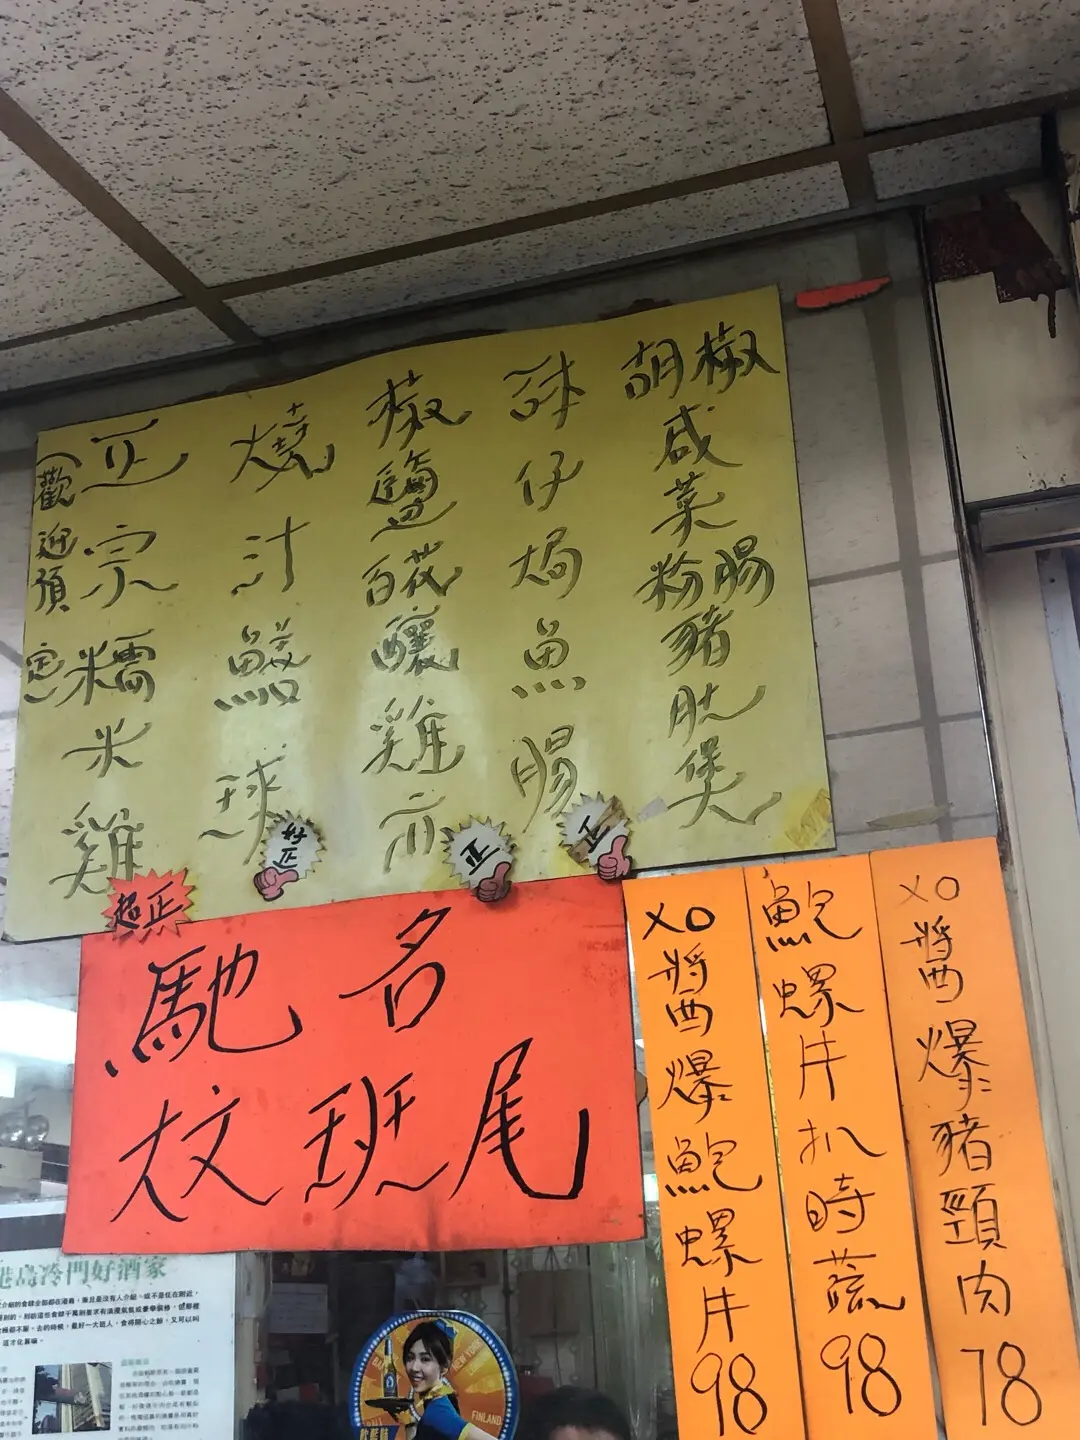 胡椒咸菜粉腸豬肚煲
砵仔焗魚腸
椒鹽百花釀雞亦
燒汁鱔球
正宗糯米雞
(歡迎預定
好正
正
正
超正
馳名
炆班尾
XO醬爆鮑螺片98
鮑螺片扒時蔬98
XO醬爆豬頸肉78
港島冷門好酒家
NEW YORK
FINLAND